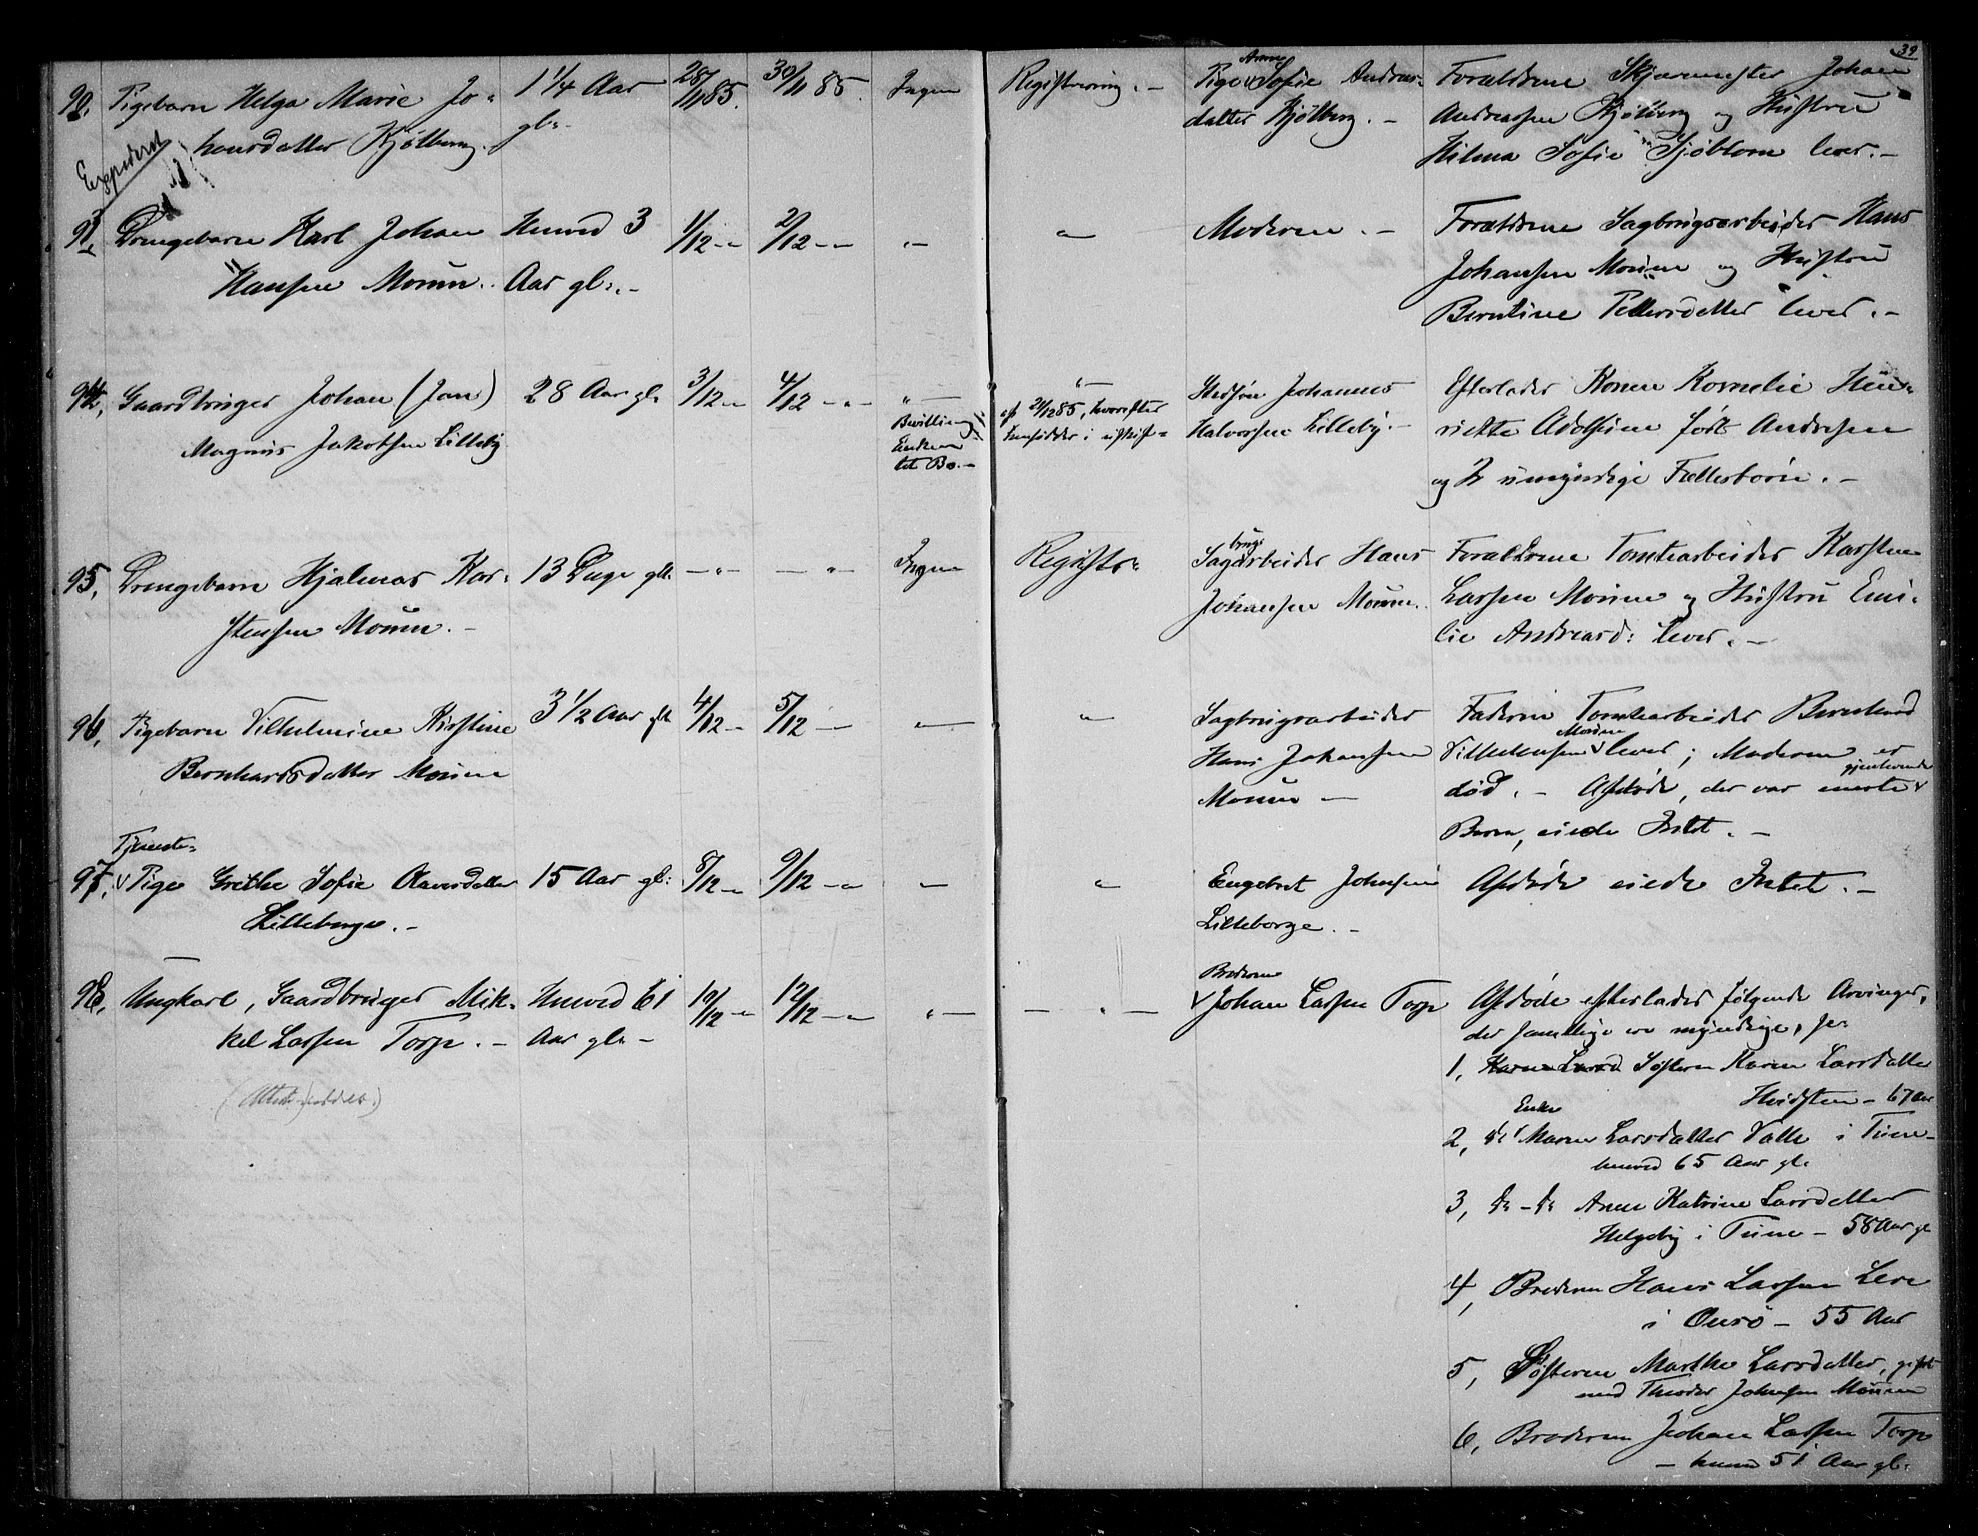 39
92. Pigebarn Helga Marie Jo-
hansdatter Kjølberg.
Expederet
1 1/4 Aar
gl.
28/11 85.
30/11 85.
Ingen
Registrering. —
Pige Sofie Andreas-
datter Kjølberg. —
Forældrene Skjærmester Johan
Andreassen Kjølberg og Hustru
Hilma Sofie Sjøblom lever. —
93. Drengebarn Karl Johan
Hansen Moum.
Henved 3
Aar gl. —
1/12 - "
2/12 - " -
- " -
"
Moderen. —
Forældrene Sagbrugsarbeider Hans
Johansen Moum og Hustru
Berntine Pettersdatter lever. —
94. Gaardbruger Johan (Jan)
Magnus Jakobsen Lilleby
28 Aar gl.
3/12 - "
4/12 - " -
- " -
Bevilling
Enken
tet Bo. —
- " -
af 21/12 85, hvorefter
hensidder i uskif-
Stedsøn Johannes
Halvorsen Lilleby. —
Efterlader Konen Kornelie Hen-
riette Adolfine født Andresen
og 2 umyndige Fællesbørn. —
95. Drengebarn Hjalmar Kar-
stensen Moum. —
13 Dage gl.
- " -
- " -
Ingen
Registr.
brugs
Sagarbeider Hans
Johansen Moum.
Forældrene Tomtearbeider Karsten
Larsen Moum og Hustru Emi-
lie Andreasd: lever. —
96. Pigebarn Vilhelmine Kirstine
Bernhardsdatter Moum
3 1/2 Aar gl.
4/12 -
5/12 - " -
- " -
"
Sagbrugsarbeider
Hans Johansen
Moum —
Faderen Tomtearbeider Bernhard
Moum
Vilhelmsen lever; Moderen er
gjenlevende
død. — Afdøde, der var eneste
Barn, eiede Intet. —
Tjeneste-
97. Pige Grethe Sofie Olavesdatter
Lilleborge. —
15 Aar gl:
8/12 - "
9/12 - " -
- " -
"
Engebret Johnsen
Lilleborge. —
Afdøde eiede Intet. —
98. Ungkarl, Gaardbruger Mik-
kel Larsen Torp. —
Henved 61
Aar gl. —
10/12 - "
12/12 - " -
- " -
- " -
Broderen
Johan Larsen Torp
Afdøde efterlader følgende Arvinger,
der samtlige ere myndige,
1, Søsteren Karen Larsdatter
Hvidsten - 67 Aar
Enke
2, do Maren Larsdatter Valle i Tune -
henved 65 Aar gl.
3, do - do Anne Katrine Larsdatter
Helgeby i Tune - 58 Aar gl
4, Broderen Hans Larsen Lere
i Onsø - 55 Aar
5, Søsteren Marthe Larsdatter, gift
med Theodor Johnsen Moum
6, Broderen Johan Larsen Torp
- henv 51 Aar gl.